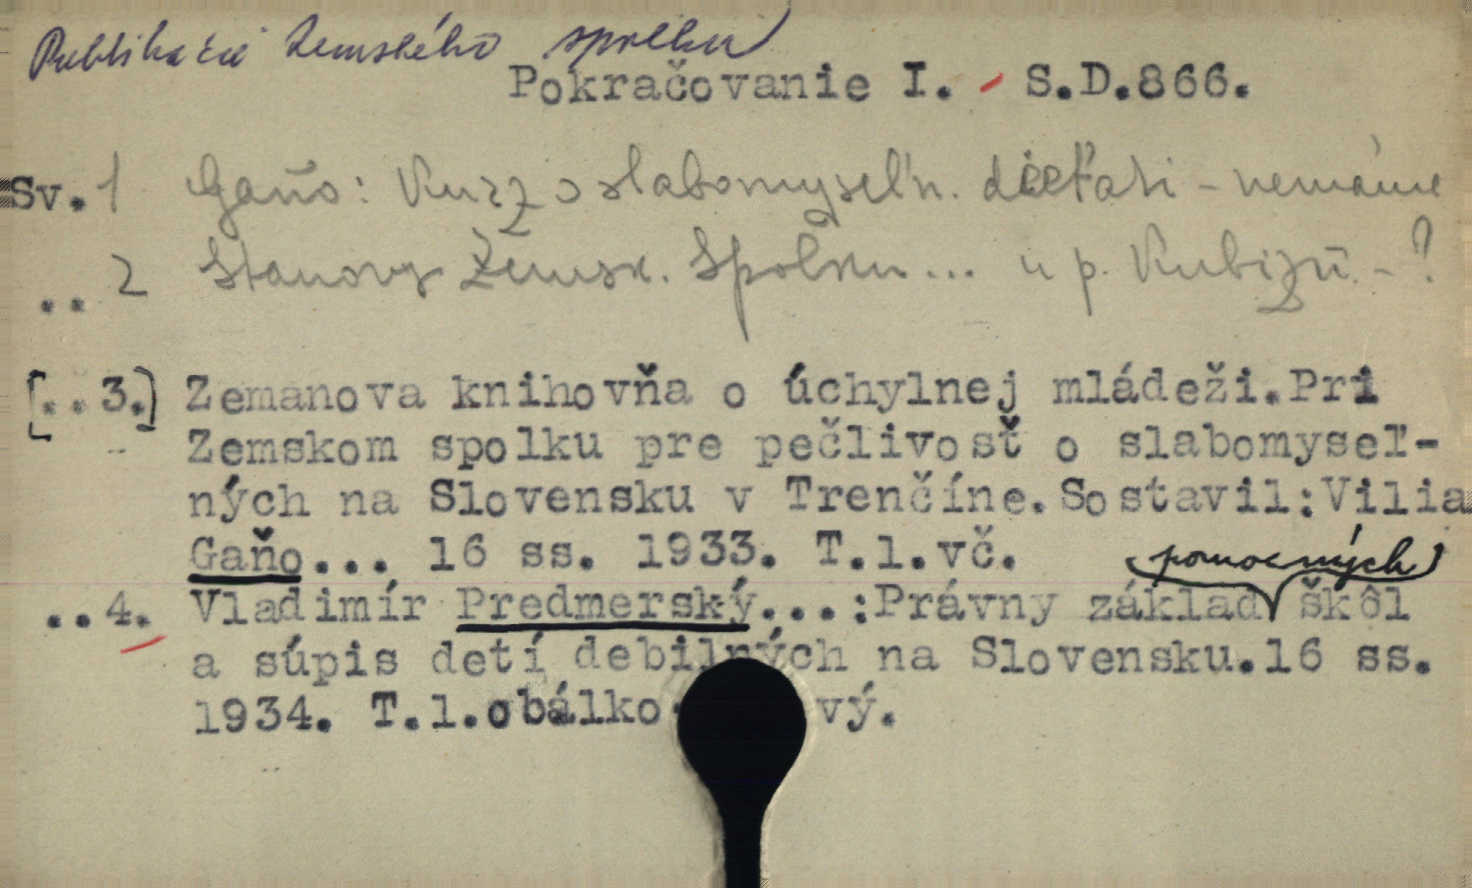 Publikácie Zemského spolku
Pokračovanie I. - S.D.866.
Sv. 1 Gaňo: Kurz o slabomyseľn. dieťati - nemáme
.. 2 Stanovy Zemsk. Spolku ... u p. Kubizu - ?
[..3.] Zemanova knihovňa o úchylnej mládeži.Pri
Zemskom spolku pre pečlivosť o slabomyseľ-
ných na Slovensku v Trenčíne.Sostavil:Vilia
Gaňo... 16 ss. 1933. T.l.vč.
pomocných
..4. Vladimír Predmerský...:Právny základ škôl
a súpis detí debilných na Slovensku.16 ss.
1934. T.l.obálko vý.